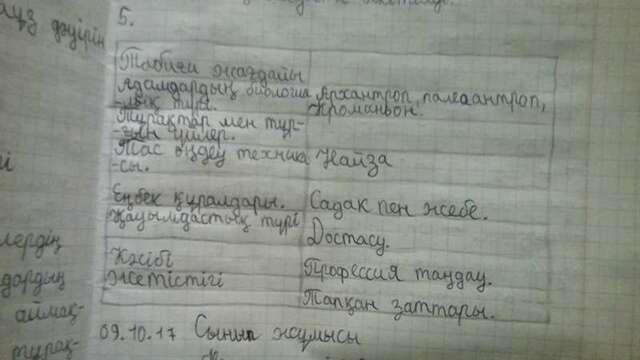 ауз дәуірін
5.
Табиғи жағдайы
Адамдардың биология Архантроп, палеаантроп,
-лық түрі. Кроманьон.
Тұрақтар мен тұр-
-ғын үйлер.
Тас өңдеу техника Найза
-сы.
Еңбек құралдары. Садақ пен жебе.
Қауымдастық түрі
Достасу.
Кәсібі
Профессия таңдау.
Жетістігі
Тапқан заттары.
лердің
дардың
аймақ-
тұрақ-
09.10.17 Сынып жұмысы